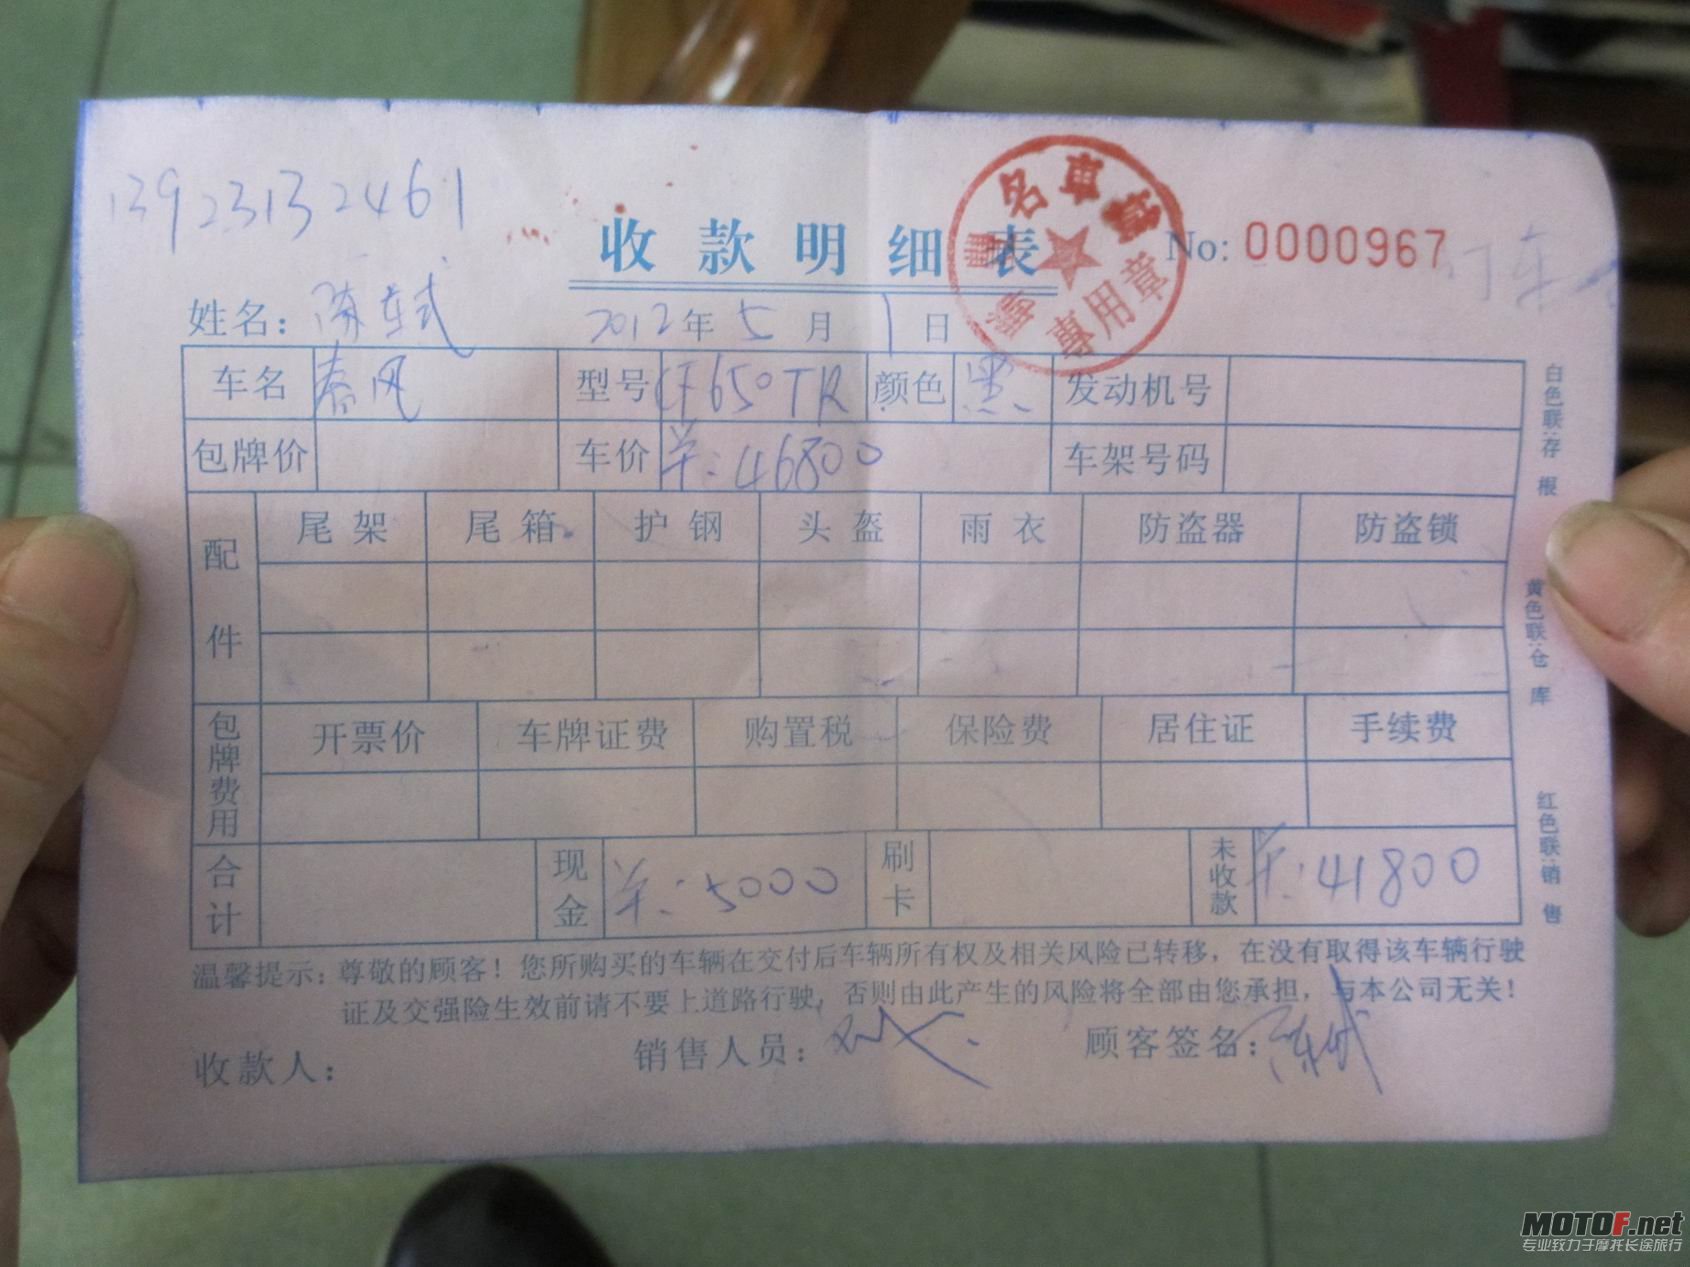 13923132461
收款明细表
No: 0000967
名車
專用章
订车
姓名：陈
2012年5月1日
车名 春风 型号 CF650TR 颜色 黑 发动机号
包牌价 车价 羊:46800 车架号码
配件 尾架 尾箱 护钢 头盔 雨衣 防盗器 防盗锁
包牌费用 开票价 车牌证费 购置税 保险费 居住证 手续费
合计 现金 羊:5000 刷卡 未收款 羊:41800
温馨提示：尊敬的顾客！您所购买的车辆在交付后车辆所有权及相关风险已转移，在没有取得该车辆行驶
证及交强险生效前请不要上道路行驶，否则由此产生的风险将全部由您承担，与本公司无关！
收款人： 销售人员： 顾客签名：
白色联:存根
黄色联:仓库
红色联:销售
MOTOF.net
专业致力于摩托长途旅行